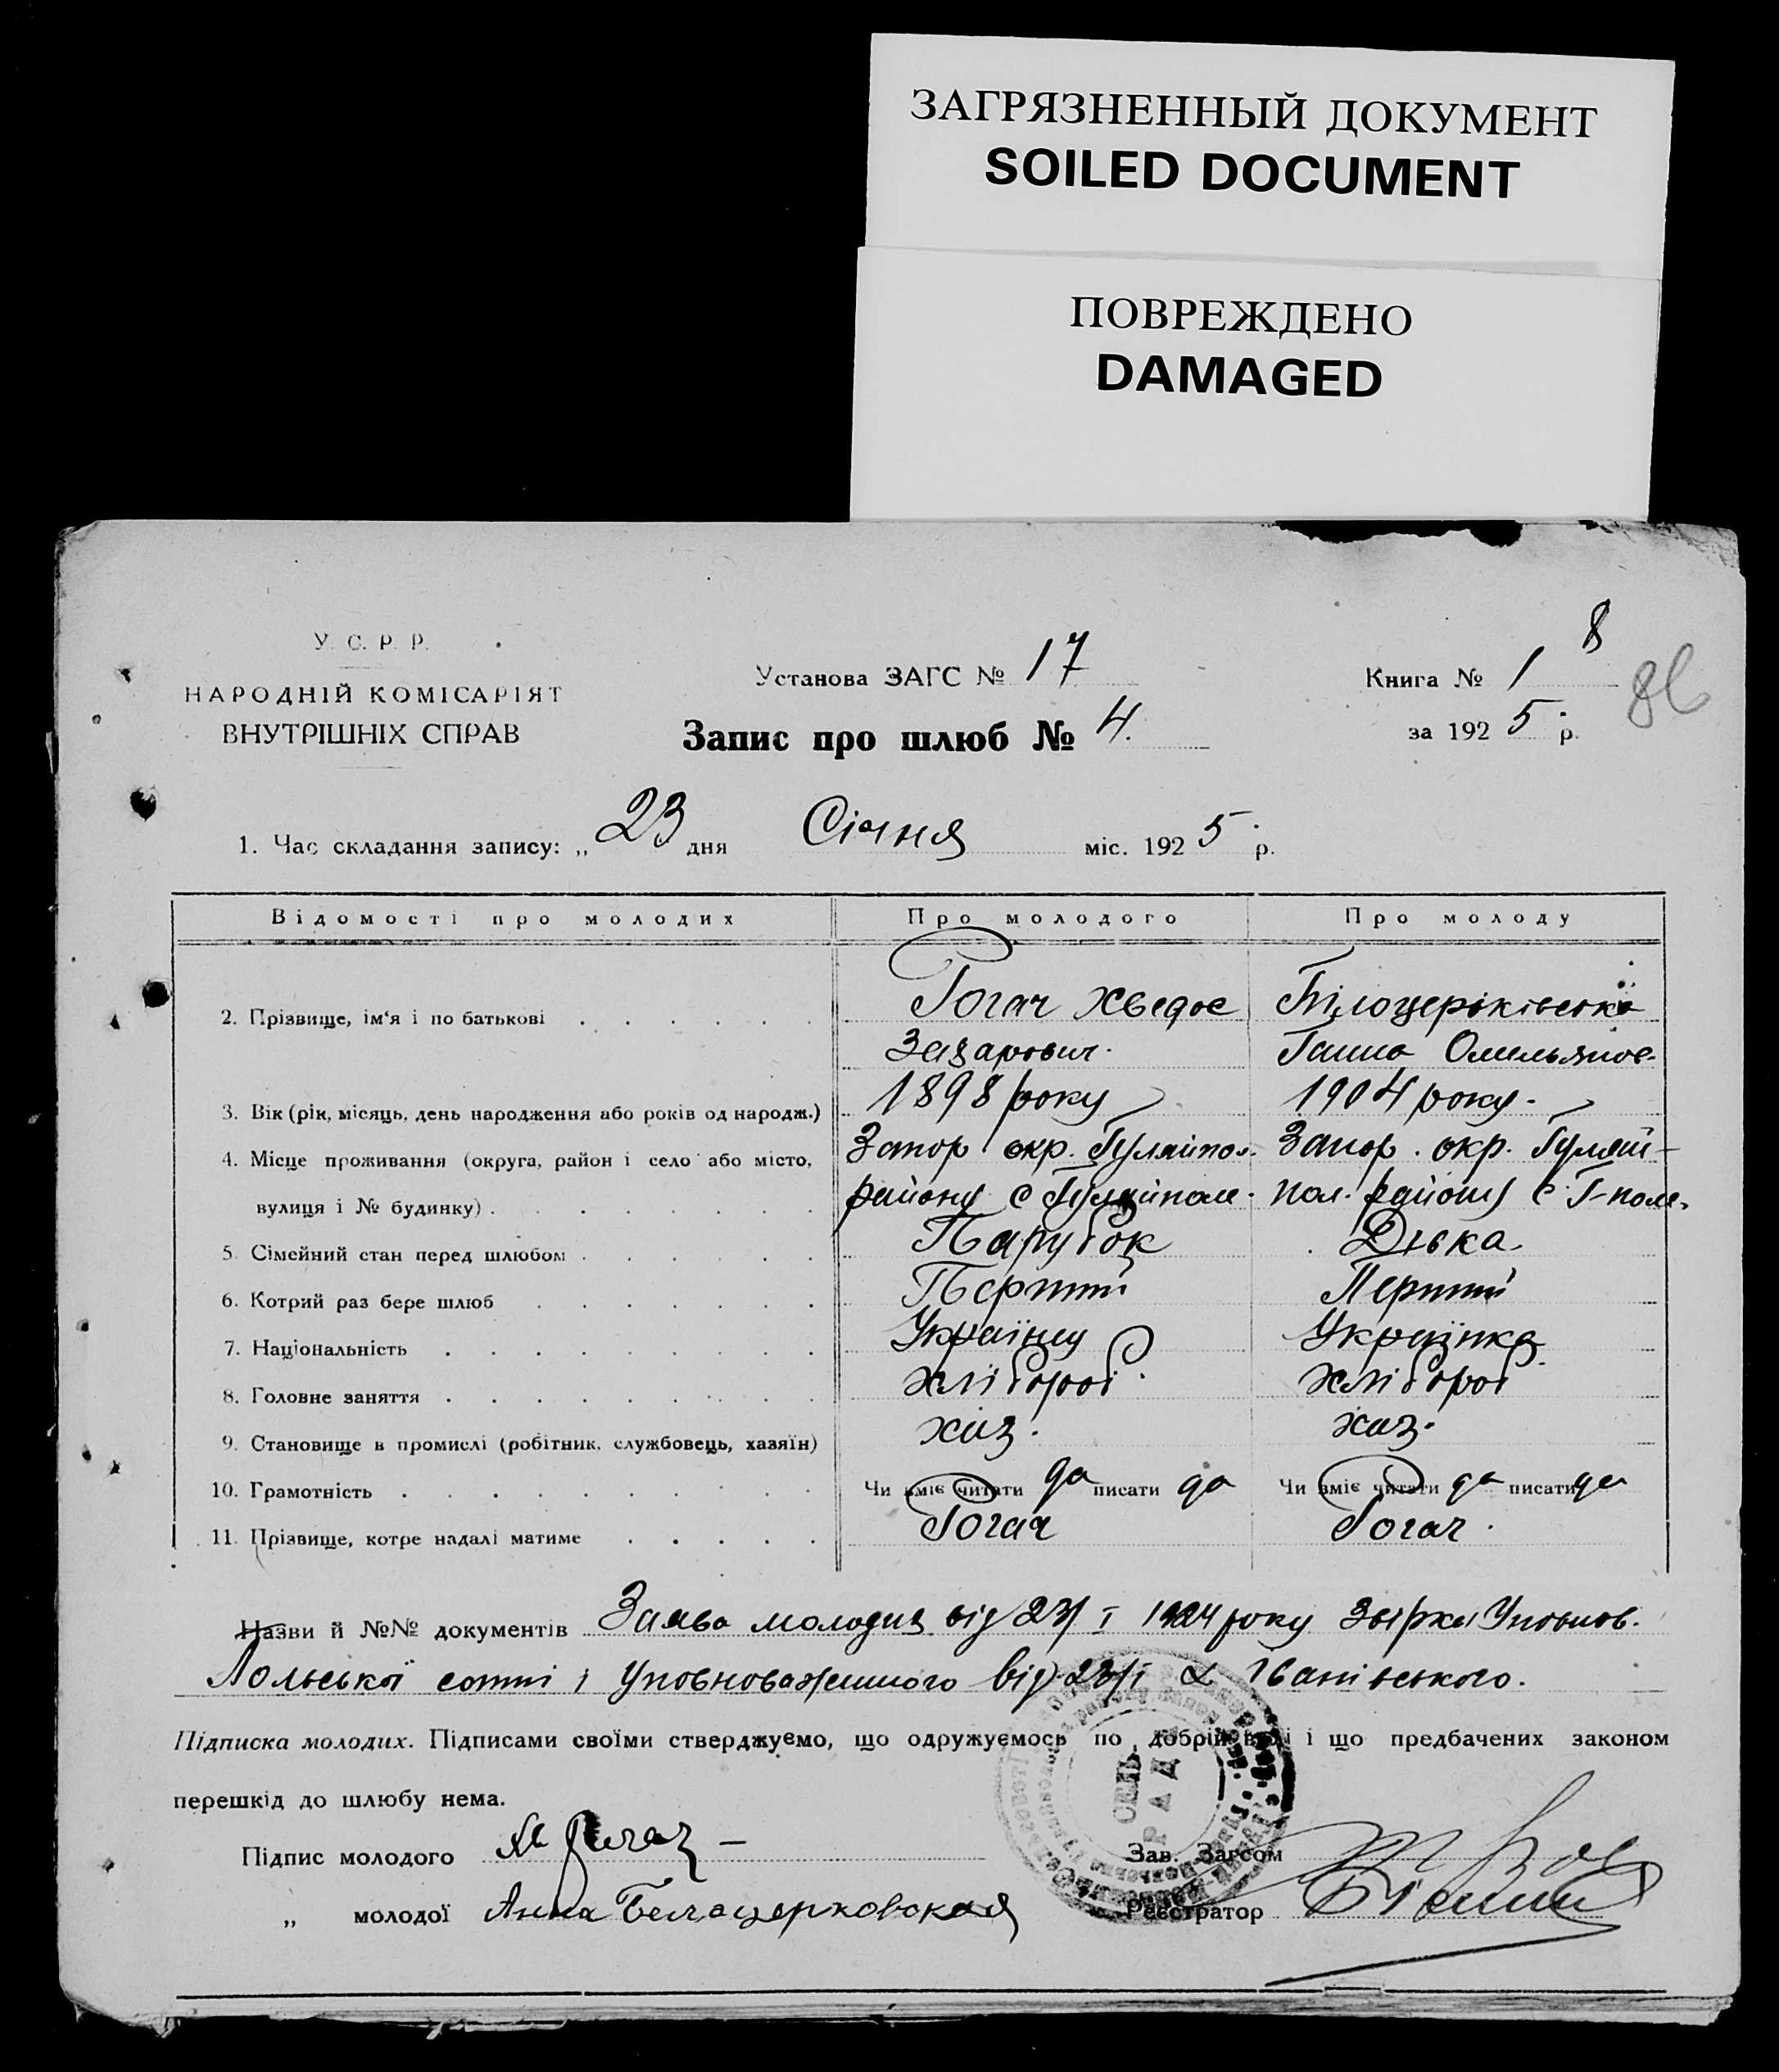 ЗАГРЯЗНЕННЫЙ ДОКУМЕНТ
SOILED DOCUMENT
ПОВРЕЖДЕНО
DAMAGED
8
У. С. Р. Р.
НАРОДНІЙ КОМІСАРІЯТ
ВНУТРІШНІХ СПРАВ
Установа ЗАГС № 17
Книга № 1
86
Запис про шлюб № 4.
за 1925 р.
1. Час складання запису: „ 23 дня Січня міс. 1925 р.
Відомості про молодих Про молодого Про молоду
2. Прізвище, ім'я і по батькові Рогач Хведос Білоцерківська
Захарович. Ганна Омельянов.
3. Вік (рік, місяць, день народження або років од народж.) 1898 року 1904 року.
4. Місце проживання (округа, район і село або місто, Запор окр. Гуляйпол. Запор. окр. Гуляй-
вулиця і № будинку) району с Гуляйполе. пол. району с Г-поле.
5. Сімейний стан перед шлюбом Парубок Дівка.
6. Котрий раз бере шлюб Перший Перший
7. Національність Українец Українка
8. Головне заняття хлібороб. хлібороб
9. Становище в промислі (робітник, службовець, хазяїн) хаз. хаз.
10. Грамотність Чи вміє читати да писати да Чи вміє читати да писати да
11. Прізвище, котре надалі матиме Рогач Рогач.
Назви й №№ документів Заява молодих від 23/I 1924 року Звірка Уповнов.
Польської сотні і Уповноваженного від 23/I Іванівського.
Підписка молодих. Підписами своїми стверджуємо, що одружуємось по добрій волі і що предбачених законом
перешкід до шлюбу нема.
СІЛЬ
РАДА
Підпис молодого Хв Рогач
Зав. Загсом
„ молодої Анна Белацерковская
Реєстратор